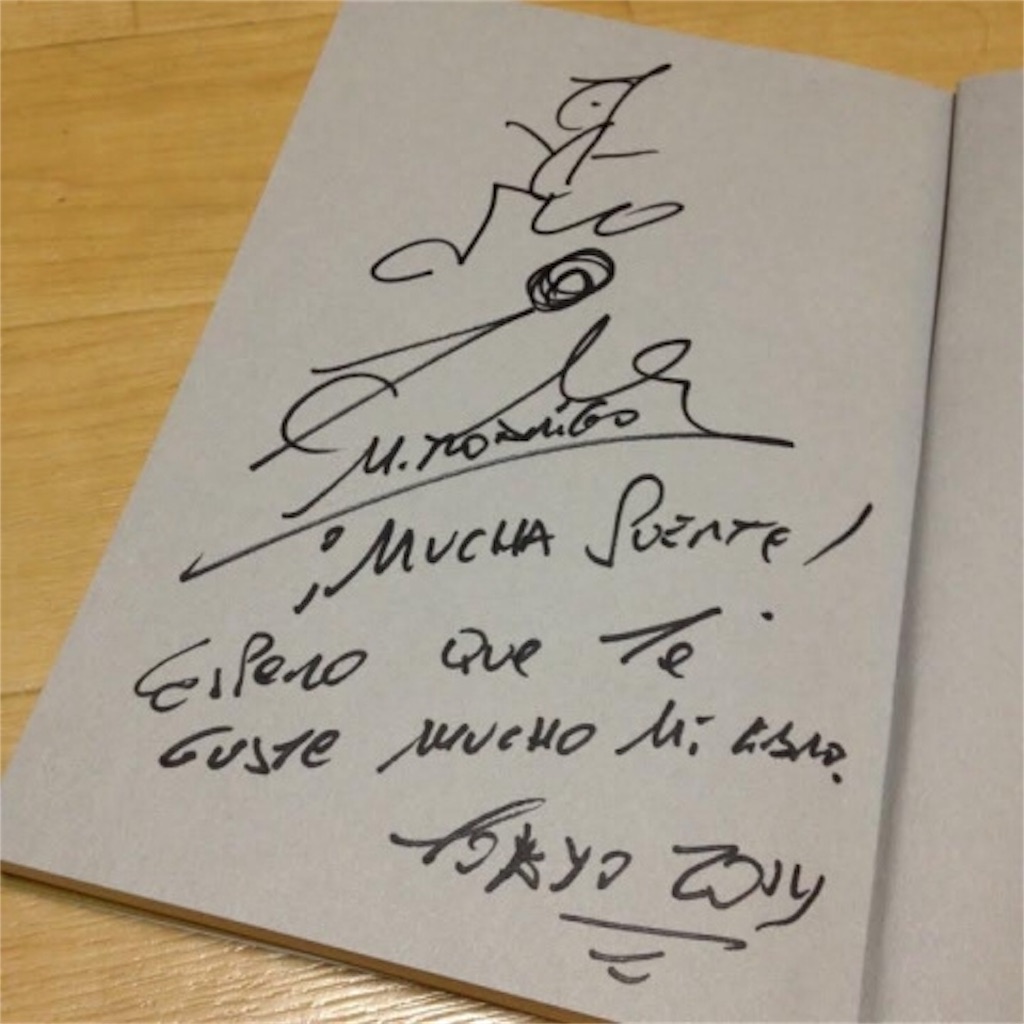 M. Rodrigo
¡MUCHA SUERTE!
ESPERO QUE TE
GUSTE MUCHO MI LIBRO.
TOKYO 2014